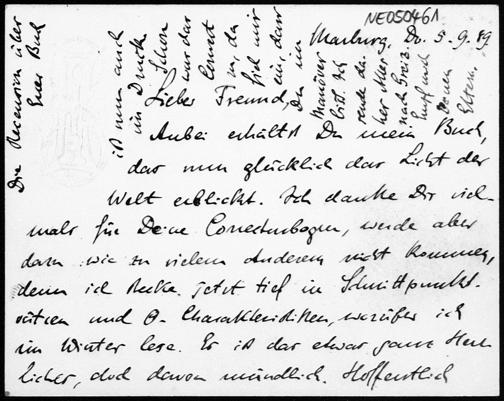 NE050461
Marburg, Do. 5.9.89
Lieber Freund,
Anbei erhältst Du mein Buch,
das nun glücklich das Licht der
Welt erblickt. Ich danke Dir viel-
mals für Deine Correcturbogen, werde aber
dazu wie zu vielem Anderem nicht kommen,
denn ich stecke jetzt tief in Schnittpunkt-
sätzen und Θ-Charakteristiken, worüber ich
im Winter lese. Es ist das etwas ganz Herr-
liches, doch davon mündlich. Hoffentlich
Die Recension über
Euer Buch
ist nun auch
im Druck.
Schon
war das
Couvert
zu, da
fiel mir
ein, dass
Du im
Manöver
bist. Ich
sende da-
her Alles
nach Greiz.
und
Deinen
Eltern.